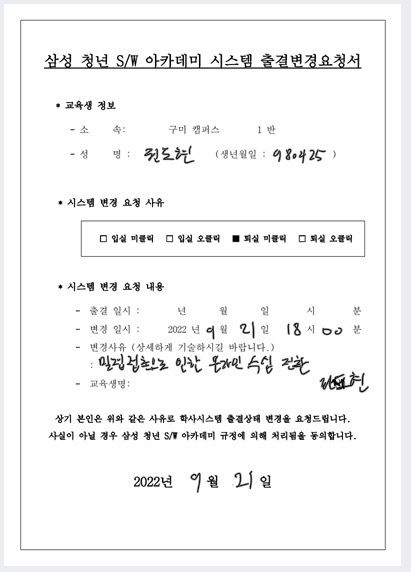 삼성 청년 S/W 아카데미 시스템 출결변경요청서
* 교육생 정보
- 소 속: 구미 캠퍼스 1 반
- 성 명 : 권도현 (생년월일 : 980425 )
* 시스템 변경 요청 사유
□ 입실 미클릭 □ 입실 오클릭 ■ 퇴실 미클릭 □ 퇴실 오클릭
* 시스템 변경 요청 내용
- 출결 일시 : 년 월 일 시 분
- 변경 일시 : 2022 년 9 월 21 일 18 시 00 분
- 변경사유 (상세하게 기술하시길 바랍니다.)
: 밀접접촉으로 인한 온라인 수업 전환
- 교육생명:
상기 본인은 위와 같은 사유로 학사시스템 출결상태 변경을 요청드립니다.
사실이 아닐 경우 삼성 청년 S/W 아카데미 규정에 의해 처리됨을 동의합니다.
2022년 9 월 21 일